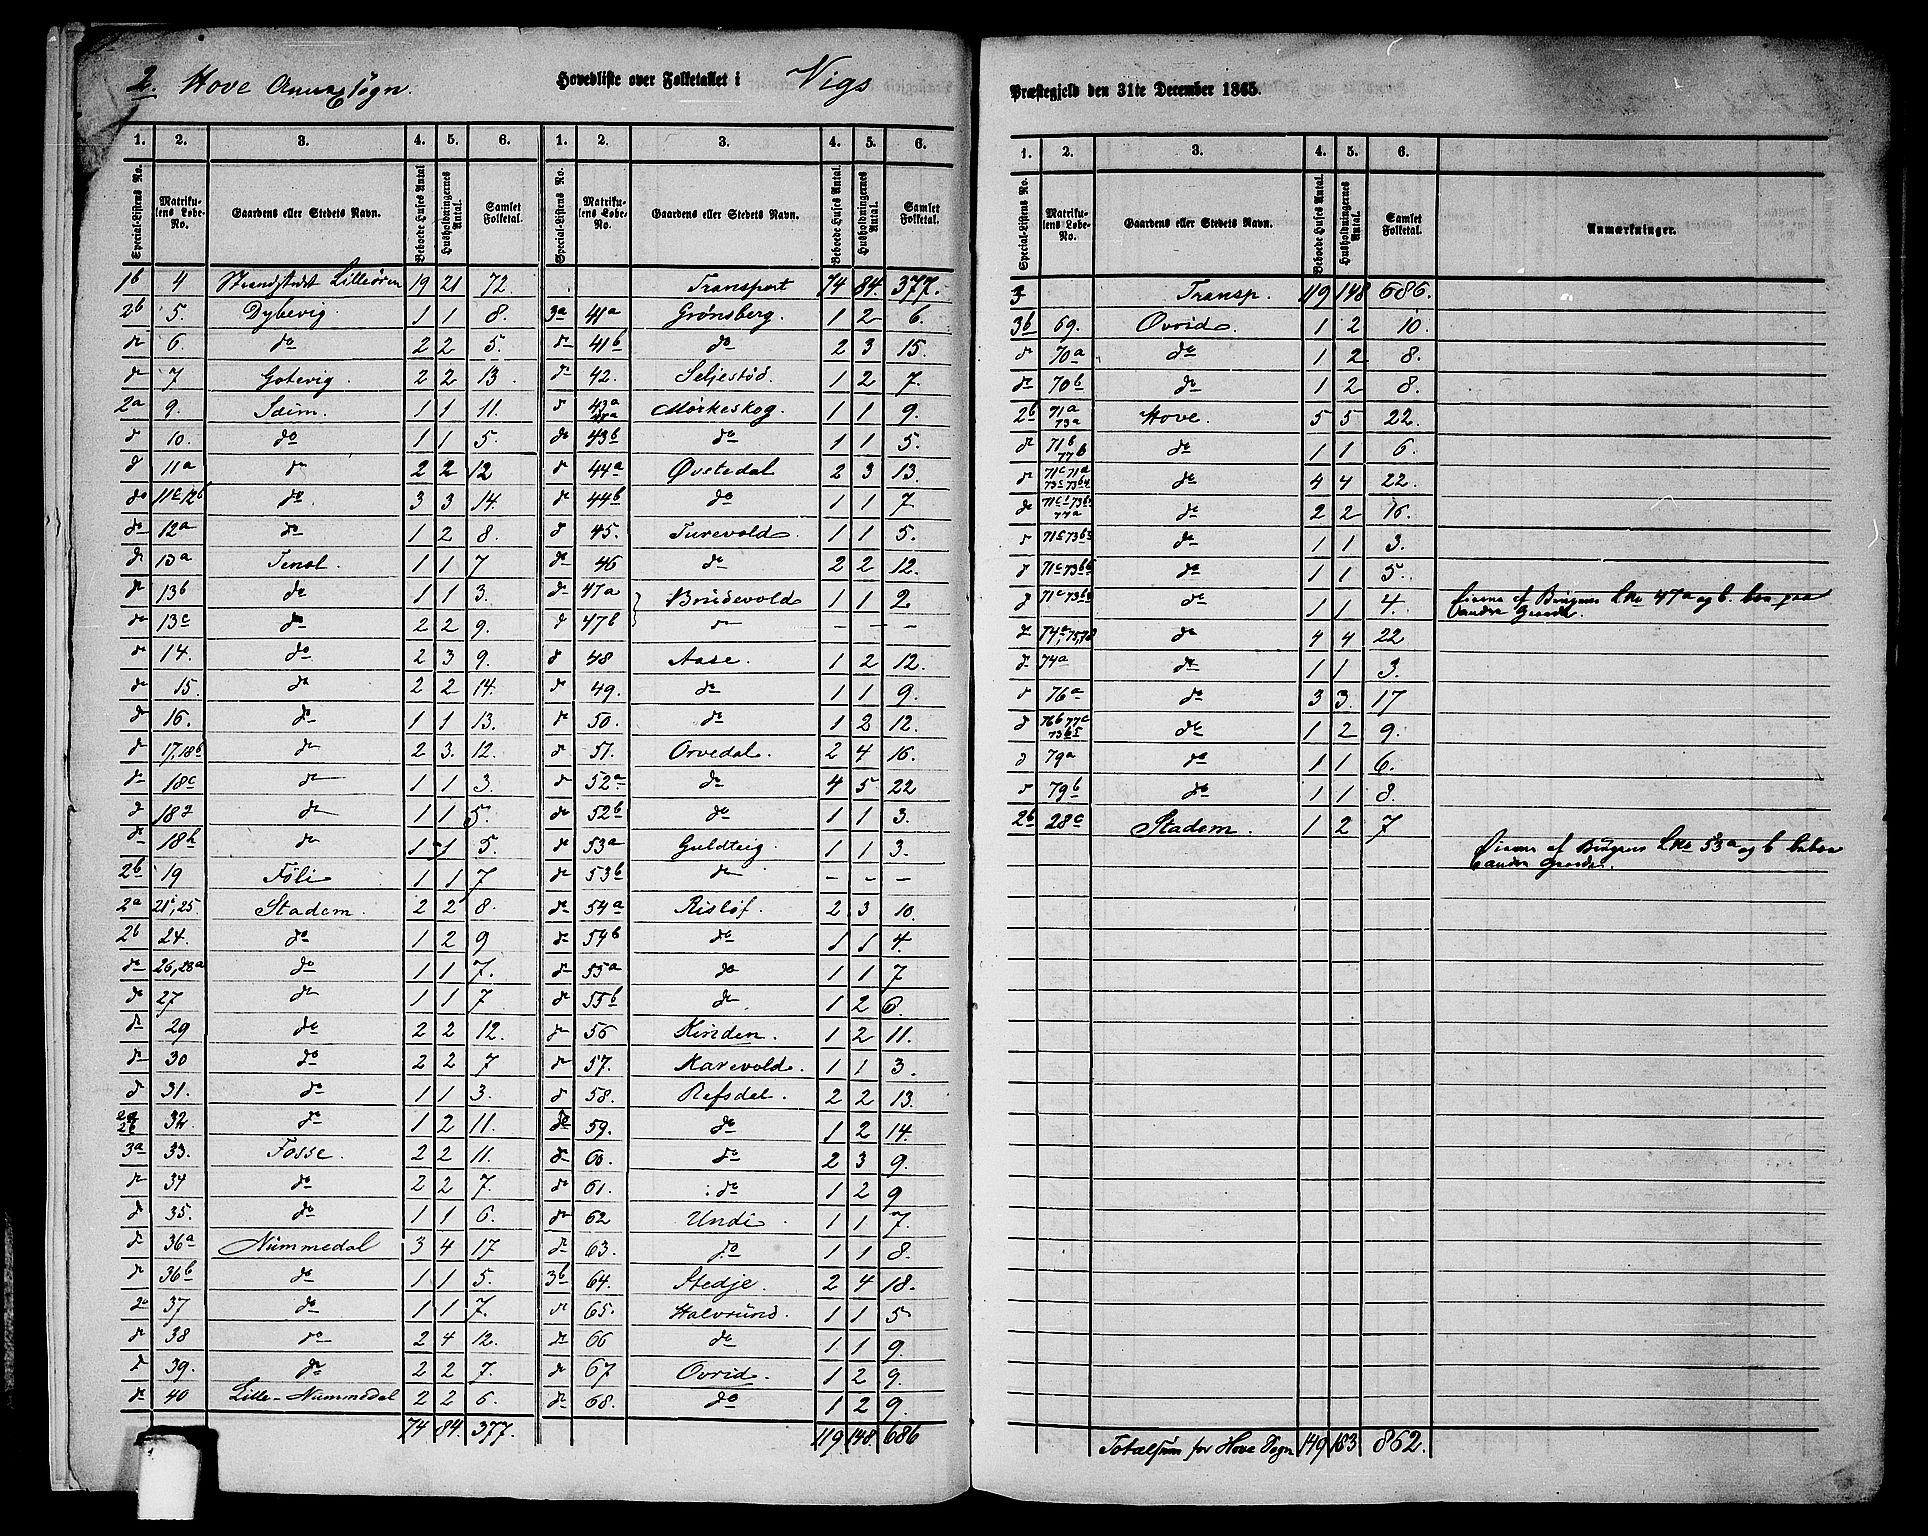 2. Hove Annexsogn. Hovedliste over Folketallet i Vigs Præstegjeld den 31te December 1865.
1. 2. 3. 4. 5. 6. 1. 2. 3. 4. 5. 6.
Special-Listens No. Matrikulens Løbe-No. Gaardens eller Stedets Navn. Beboede Huses Antal Husholdningernes Antal. Samlet Folketal. Special-Listens No. Matrikulens Løbe-No. Gaardens eller Stedets Navn. Beboede Huses Antal Husholdningernes Antal. Samlet Folketal.
1b 4 Strandstedet Lilleøren 19 21 72.
2b 5. Dybevig. 1 1 8.
do 6. do 2 2 5.
do 7 Gotevig. 2 2 13.
2a 9. Seim. 1 1 11.
do 10. do 1 1 5.
do 11a do 2 2 12
do 11c,12b do. 3 3 14.
do 12a do 1 2 8.
do 13a Tenol. 1 1 7
do 13b do 1 1 3.
do 13c do 2 2 9.
do 14. do 2 3 9.
do 15. do 2 2 14.
do 16. do 1 1 13.
do 17,18b do 2 3. 12.
do 18c do 1 1 3.
do 182 do 1 1 5.
do 18h do 1 1 5.
2b 19 Føli 1 1 7
2a 21c,25. Stadem. 2 2 8.
2b 24. do 1 2 9
do 26,28a do 1 1 7.
do 27 do 1 1 7
do 29 do 2 2 12.
do 30 do 2 2 7
do 31. do 1 1 3.
2a 2b 32. do 1 2 11.
3a 33. Fosse. 2 2 11.
do 34 do 2 2 7.
do 35. do 1 1 6.
do 36a Nummedal 3 4 17
do 36b do 1 1 5.
do 37 do 1 1 7.
do 38 do 2 4 12.
do 39. do 2 2 7.
do 40 Lille-Nummedal 2 2 6.
74 84. 377.
Transport 74 84. 377.
3a 41a Grønsberg. 1 2 6.
do 41b do 2 3 15.
do 42. Seljestød. 1 2 7.
do 43a Mørkeskog. 1 1 9.
do 43b do 1 1 5.
do 44a Øvstedal 2 3 13.
do 44b do 1 1 7
do 45. Turevold. 1 1 5.
do 46 do 2 2 12.
do 47a Bridevold 1 1 2
do 47b do - - -
do 48 Aase. 1 2 12.
do 49. do 1 1 9.
do 50. do 1 2 12.
do 51. Orvedal. 2 4 16.
do 52a do 4 5 22
do 52b do 1 1 3.
do 53a Guldteig. 1 1 3.
do 53b do - - -
do 54a Risløf. 2 3 10.
do 54b do 1 1 4.
do 55a do 1 1 7
do 55b do 1 2 6.
do 56 Kinden. 1 2 11.
do 57. Karevold. 1 1 3.
do 58. Refsdal. 2 2 13.
do 59. do 1 2 14.
do 60. do 2 3 9.
do 61. do 1 2 9
do 62 Undi 1 1 7.
do 63. do 1 1 8.
3b 64. Stedje 2 4 18.
do 65. Halvrund. 1 1 5
do 66 do 1 1 9.
do 67 Ovrid. 1 2 9.
do 68. do 1 2 9.
119 148. 686
1. 2. 3. 4. 5. 6.
Special-Listens No Matrikulens Løbe-No. Gaardens eller Stedets Navn. Beboede Huses Antal. Husholdningernes Antal. Samlet Folketal. Anmærkninger.
3 Transp. 119 148 686.
3b 69. Øvrid. 1 2 10.
do 70a do 1 2 8.
do 70b do 1 2 8.
2b 71a 73a Hove. 5 5 22.
do 71b 77b do 1 1 6.
do 71c 71a 73c 73b4 do 4 4 22.
do 71c1 73b 77a do 2 2 16.
do 71c 73b do 1 1 3.
do 71c 73b do 1 1 5.
do 71c 73b do 1 1 4. Eierne af Brugenes Lno 47a og b. bor paa
andre Gaarde.
do 74c, 75,78 do 4 4 22
do 74a do 1 1 3.
do 76a do 3 3. 17
do 76b 77c 73b5 do 1 2 9.
do 79a do 1 1 6.
do 79b do 1 1 8.
2b 28c Stadem. 1 2 7
Eierne af Brugenes Lno 53a og b beboe
andre Gaarde.
Totalsum for Hove Sogn 149 183 862.